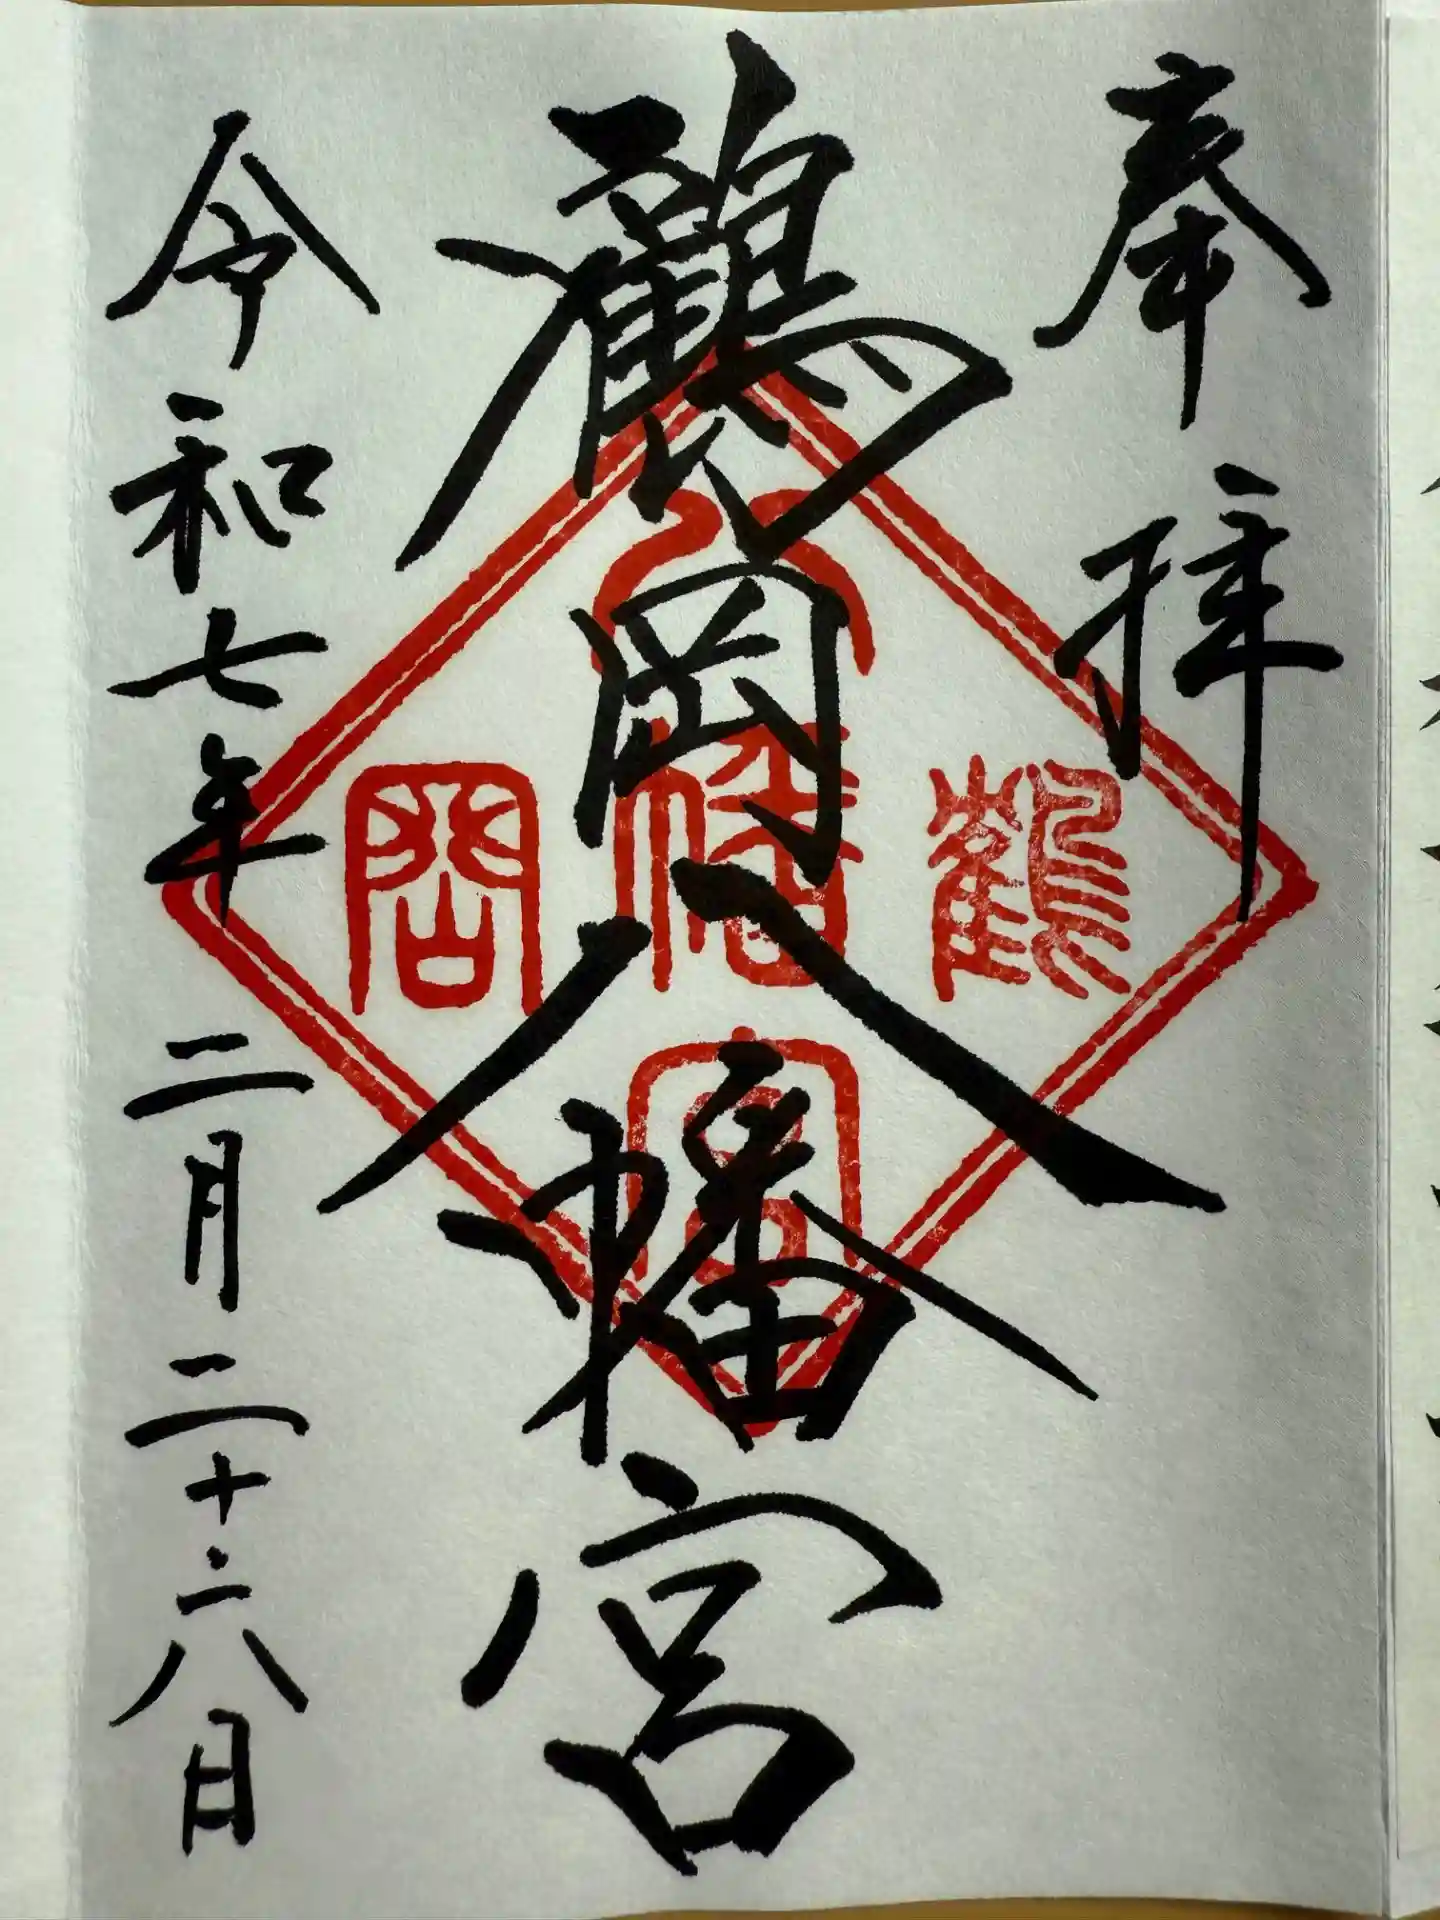 奉拝
鶴岡八幡宮
令和七年 二月二十六日
鶴岡八幡宮